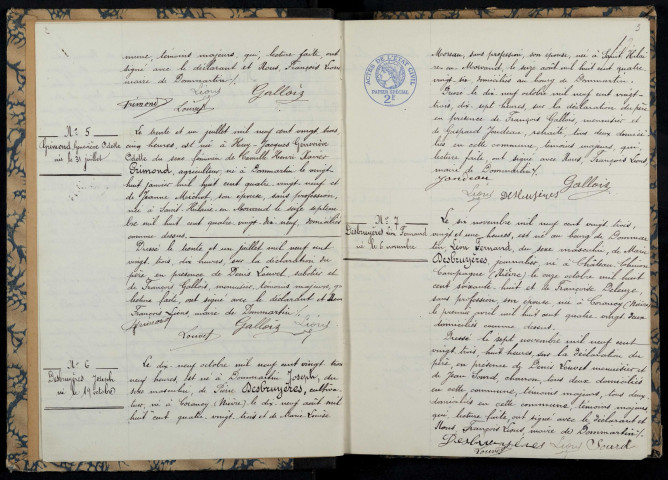 mune, témoins majeurs, qui, lecture faite ont
signé avec le déclarant et Nous, François Lions
maire de Dommartin /.
Primond Lions Gallois
Louvet
N° 5
Primond Geneviève Odette
née le 31 juillet
Le trente et un juillet mil neuf cent vingt trois,
onze heures, est née à Huez-Jacques Geneviève
Odette du sexe féminin de Camille Henri Xavier
Primond, agriculteur, né à Dommartin le vingt
huit janvier mil huit cent quatre-vingt-neuf et
de Jeanne Michot, son épouse, sans profession,
née à Saint-Hilaire en Morvand le onze septem-
bre mil huit cent quatre-vingt-dix-neuf, domiciliés
comme dessus.
Dressé le trente et un juillet mil neuf cent
vingt trois, dix heures, sur la déclaration du
père en présence de Denis Louvet, sabotier et
de François Gallois, menuisier, témoins majeurs, qui,
lecture faite, ont signé avec le déclarant et Nous
François Lions, maire de Dommartin /.
Primond Gallois Lions
Louvet
N° 6
Desbruyères Joseph
né le 19 octobre
Le dix neuf octobre mil neuf cent vingt trois
neuf heures, est né à Dommartin Joseph, du
sexe masculin, de Pierre Desbruyères, cultiva-
teur, né à Corancy (Nièvre) le dix neuf août mil
huit cent quatre-vingt-trois et de Marie Louise
3
Moreau, sans profession, son épouse, née à Saint Hilai-
re en Morvand, le onze août mil huit cent quatre
vingt-dix, domiciliés au bourg de Dommartin.
Dressé le dix neuf octobre mil neuf cent vingt-
trois, dix sept heures, sur la déclaration du père
en présence de François Gallois, menuisier et
de Gaspard Jondeau, retraité, tous deux domici-
liés en cette commune, témoins majeurs, qui,
lecture faite, ont signé avec Nous, François Lions,
maire de Dommartin /.
Jondeau Gallois
Lions Desbruyères
ACTES DE L'ETAT CIVIL
PAPIER SPECIAL
2F
N° 7
Desbruyères Léon Fernand
né le 6 novembre
Le six novembre mil neuf cent vingt trois,
vingt et une heures, est né au bourg de Dommar-
tin, Léon Fernand, du sexe masculin, de Marie
Desbruyères, journalier, né à Château-Chinon
Campagne (Nièvre) le onze octobre mil huit
cent soixante-huit et de Françoise
sans profession, son épouse, née à Corancy (Nièvre)
le premier avril mil huit cent quatre-vingt-deux
domiciliés comme dessus.
Dressé le sept novembre mil neuf cent
vingt trois, huit heures, sur la déclaration du
père, en présence de Denis Louvet menuisier et
de Jean Sourd, charron, tous deux domiciliés
en cette commune, témoins majeurs, tous deux
domiciliés en cette commune, témoins majeurs
qui, lecture faite, ont signé avec le déclarant et
Nous, François Lions, maire de Dommartin /.
Desbruyères Lions Sourd
Louvet